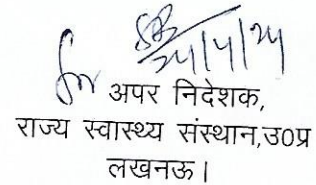 24/4/24
for अपर निदेशक,
राज्य स्वास्थ्य संस्थान,उ0प्र
लखनऊ।